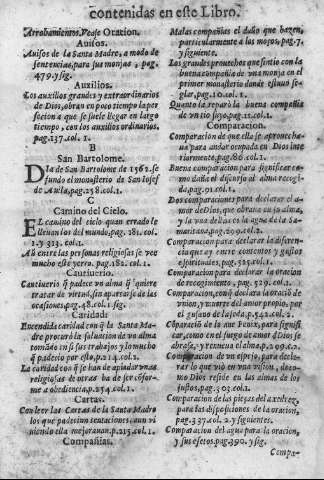 contenidas en este Libro.
Arrobamientos, Vease Oracion.
Auisos.
Auisos de la Santa Madre, a modo de
sentencias, para sus monjas, pag.
479. y sig.
Auxilios.
Los auxilios grandes y extraordinarios
de Dios, obran en poco tiempo la per
feccion a que se suele llegar en largo
tiempo, con los auxilios ordinarios,
pag. 137. col. 1.
B
San Bartolome.
Dia de San Bartolome de 1562. se
fundo el monasterio de San Iosef
de Auila, pag. 238. col. 1.
C
Camino del Cielo.
El camino del cielo quan errado le
lleuan los del mundo, pag. 281. col.
1. y 313. col. 1.
Aũ entre las personas religiosas se vee
mucho este yerro. pag. 282. col. 1.
Cautiuerio.
Cautiuerio q̃ padece vn alma q̃ quiere
tratar de virtud, sin apartarse de las
ocasiones, pag. 48. col. 1. sig.
Caridad:
Encendida caridad con q̃ la Santa Ma-
dre procurò la saluacion de vn alma
tomãdo en si sus trabajos y lo mucho
q̃ padecio por esto, p. 214. col. 1.
La caridad con q̃ se han de ayudar vnas
religiosas de otras ha de ser cõfor-
me a obediencia, p. 254. col. 1.
Cartas.
Con leer las Cartas de la Santa Madre
los que padecian tentaciones, aun vi
uiendo ella mejorauan. p. 215. col. 1.
Compañias.
Malas compañias el daño que hazen,
particularmente a los moços, pag. 7.
y siguiente.
Los grandes prouechos que sintio con la
buena compañia de vna monja en el
primer monasterio donde estuuo se-
glar, pag. 10. col. 1.
Quanto la reparò la buena compañia
de vn tio suyo, pag. 11. col.
Comparacion.
Comparacion de que ella se aprouecha-
ua para andar ocupada en Dios inte
riormente, pag. 86. col. 1.
Buena comparacion para significar co-
mo daña el discurso al alma recogi-
da, pag. 91. col. 1.
Dos comparaciones para declarar el a-
mor de Dios, que obraua en su alma,
y la vna de las es la agua de la Sa-
maritana, pag. 299. col. 2.
Comparacion para declarar la diferen-
cia que ay entre contentos y gustos
espirituales, pag. 525. col. 1.
Comparacion para declarar la oracion
de recogimiento, pag. 529. col. 1.
Comparacion, con q̃ declara la oraciõ de
vnion, y muerte del amor propio, por
el gusano de la seda, p. 542. col. 2.
Cõparaciõ de la aue Fenix, para signifi
car, como en el fuego de amor d̃ Dios se
abrasa, y renueua el alma, p. 299. c. 2.
Comparacion de vn espejo, para decla-
rar lo que vio en vna vision, de co-
mo Dios reside en las almas de los
justos, pag. 303. col. 1.
Comparacion de las pieças del axedrez,
para las disposiciones de la oracion,
pag. 337. col. 2. y siguientes.
Comparacion del agua para la oracion,
y sus efetos. pag. 390. y sig.
Compa-